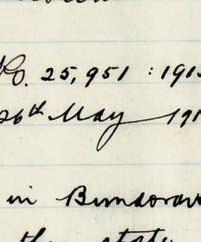 No. 25,951 : 191
26th May 191
in Bundoora
the state